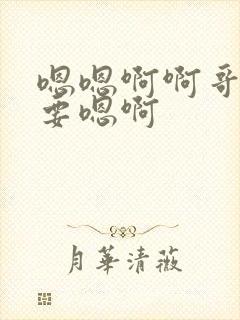 嗯嗯啊啊哥
要嗯啊
月華清薇